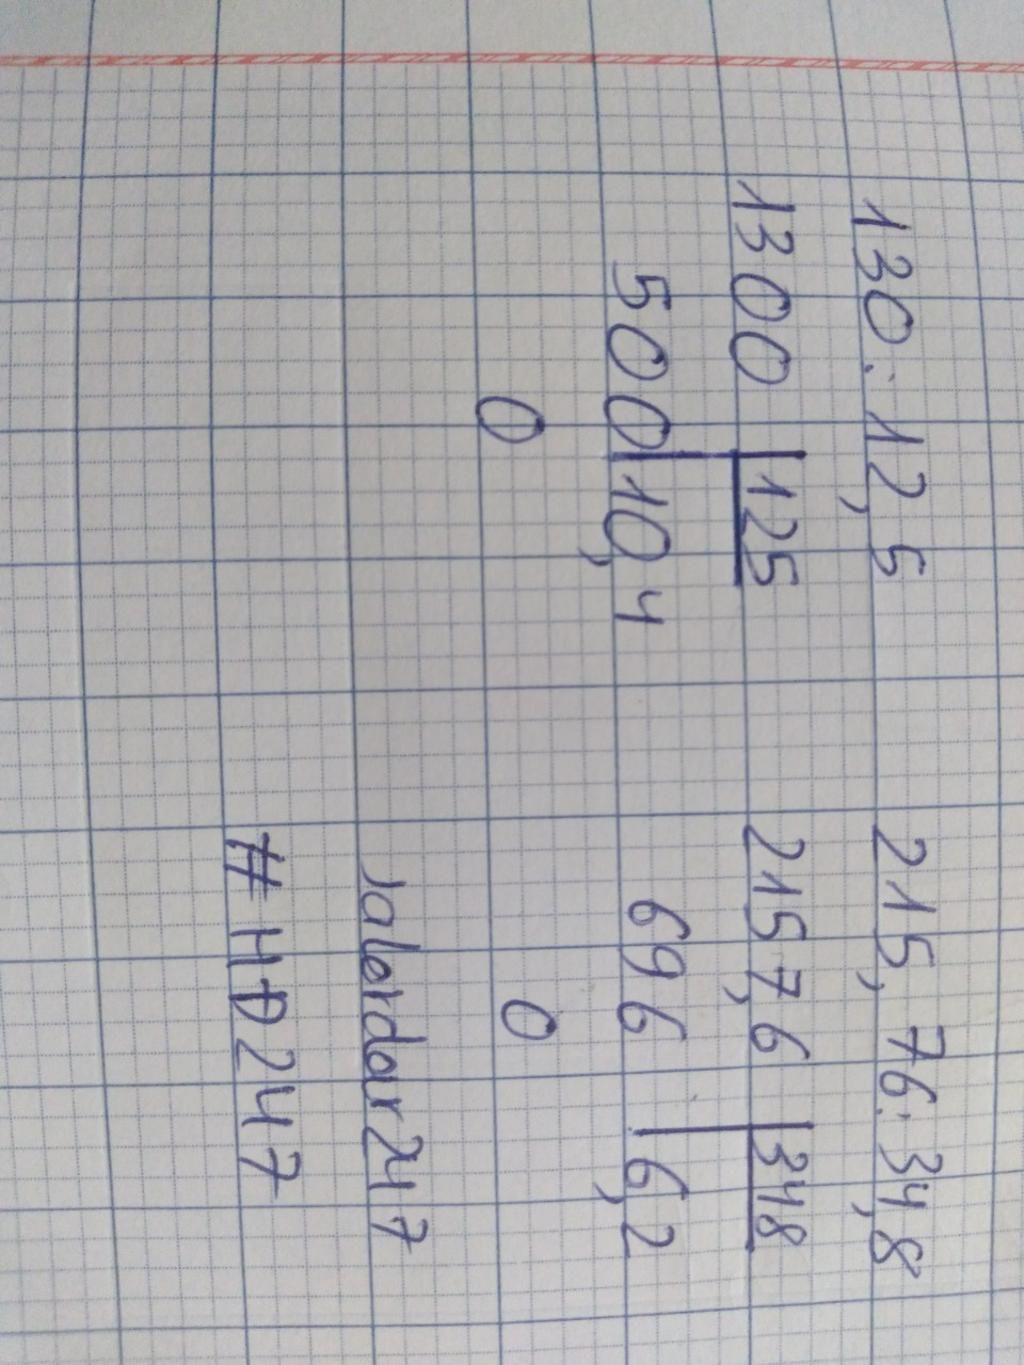 130:12,5
1300 125
500 10,4
0
215,76:34,8
2157,6 348
696 6,2
0
#HD247